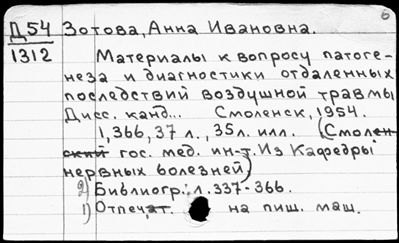 6
Д 54 Зотова, Анна Ивановна.
1312 Материалы к вопросу патоге-
неза и диагностики отдаленных
последствий воздушной травмы
Дисс. канд... Смоленск, 1954.
1,366,37 л., 35 л. илл. (Смолен-
ский гос. мед. ин-т. Из Кафедры
нервных болезней)
2) Библиогр.: л. 337-366.
1) Отпечат. на пиш. маш.